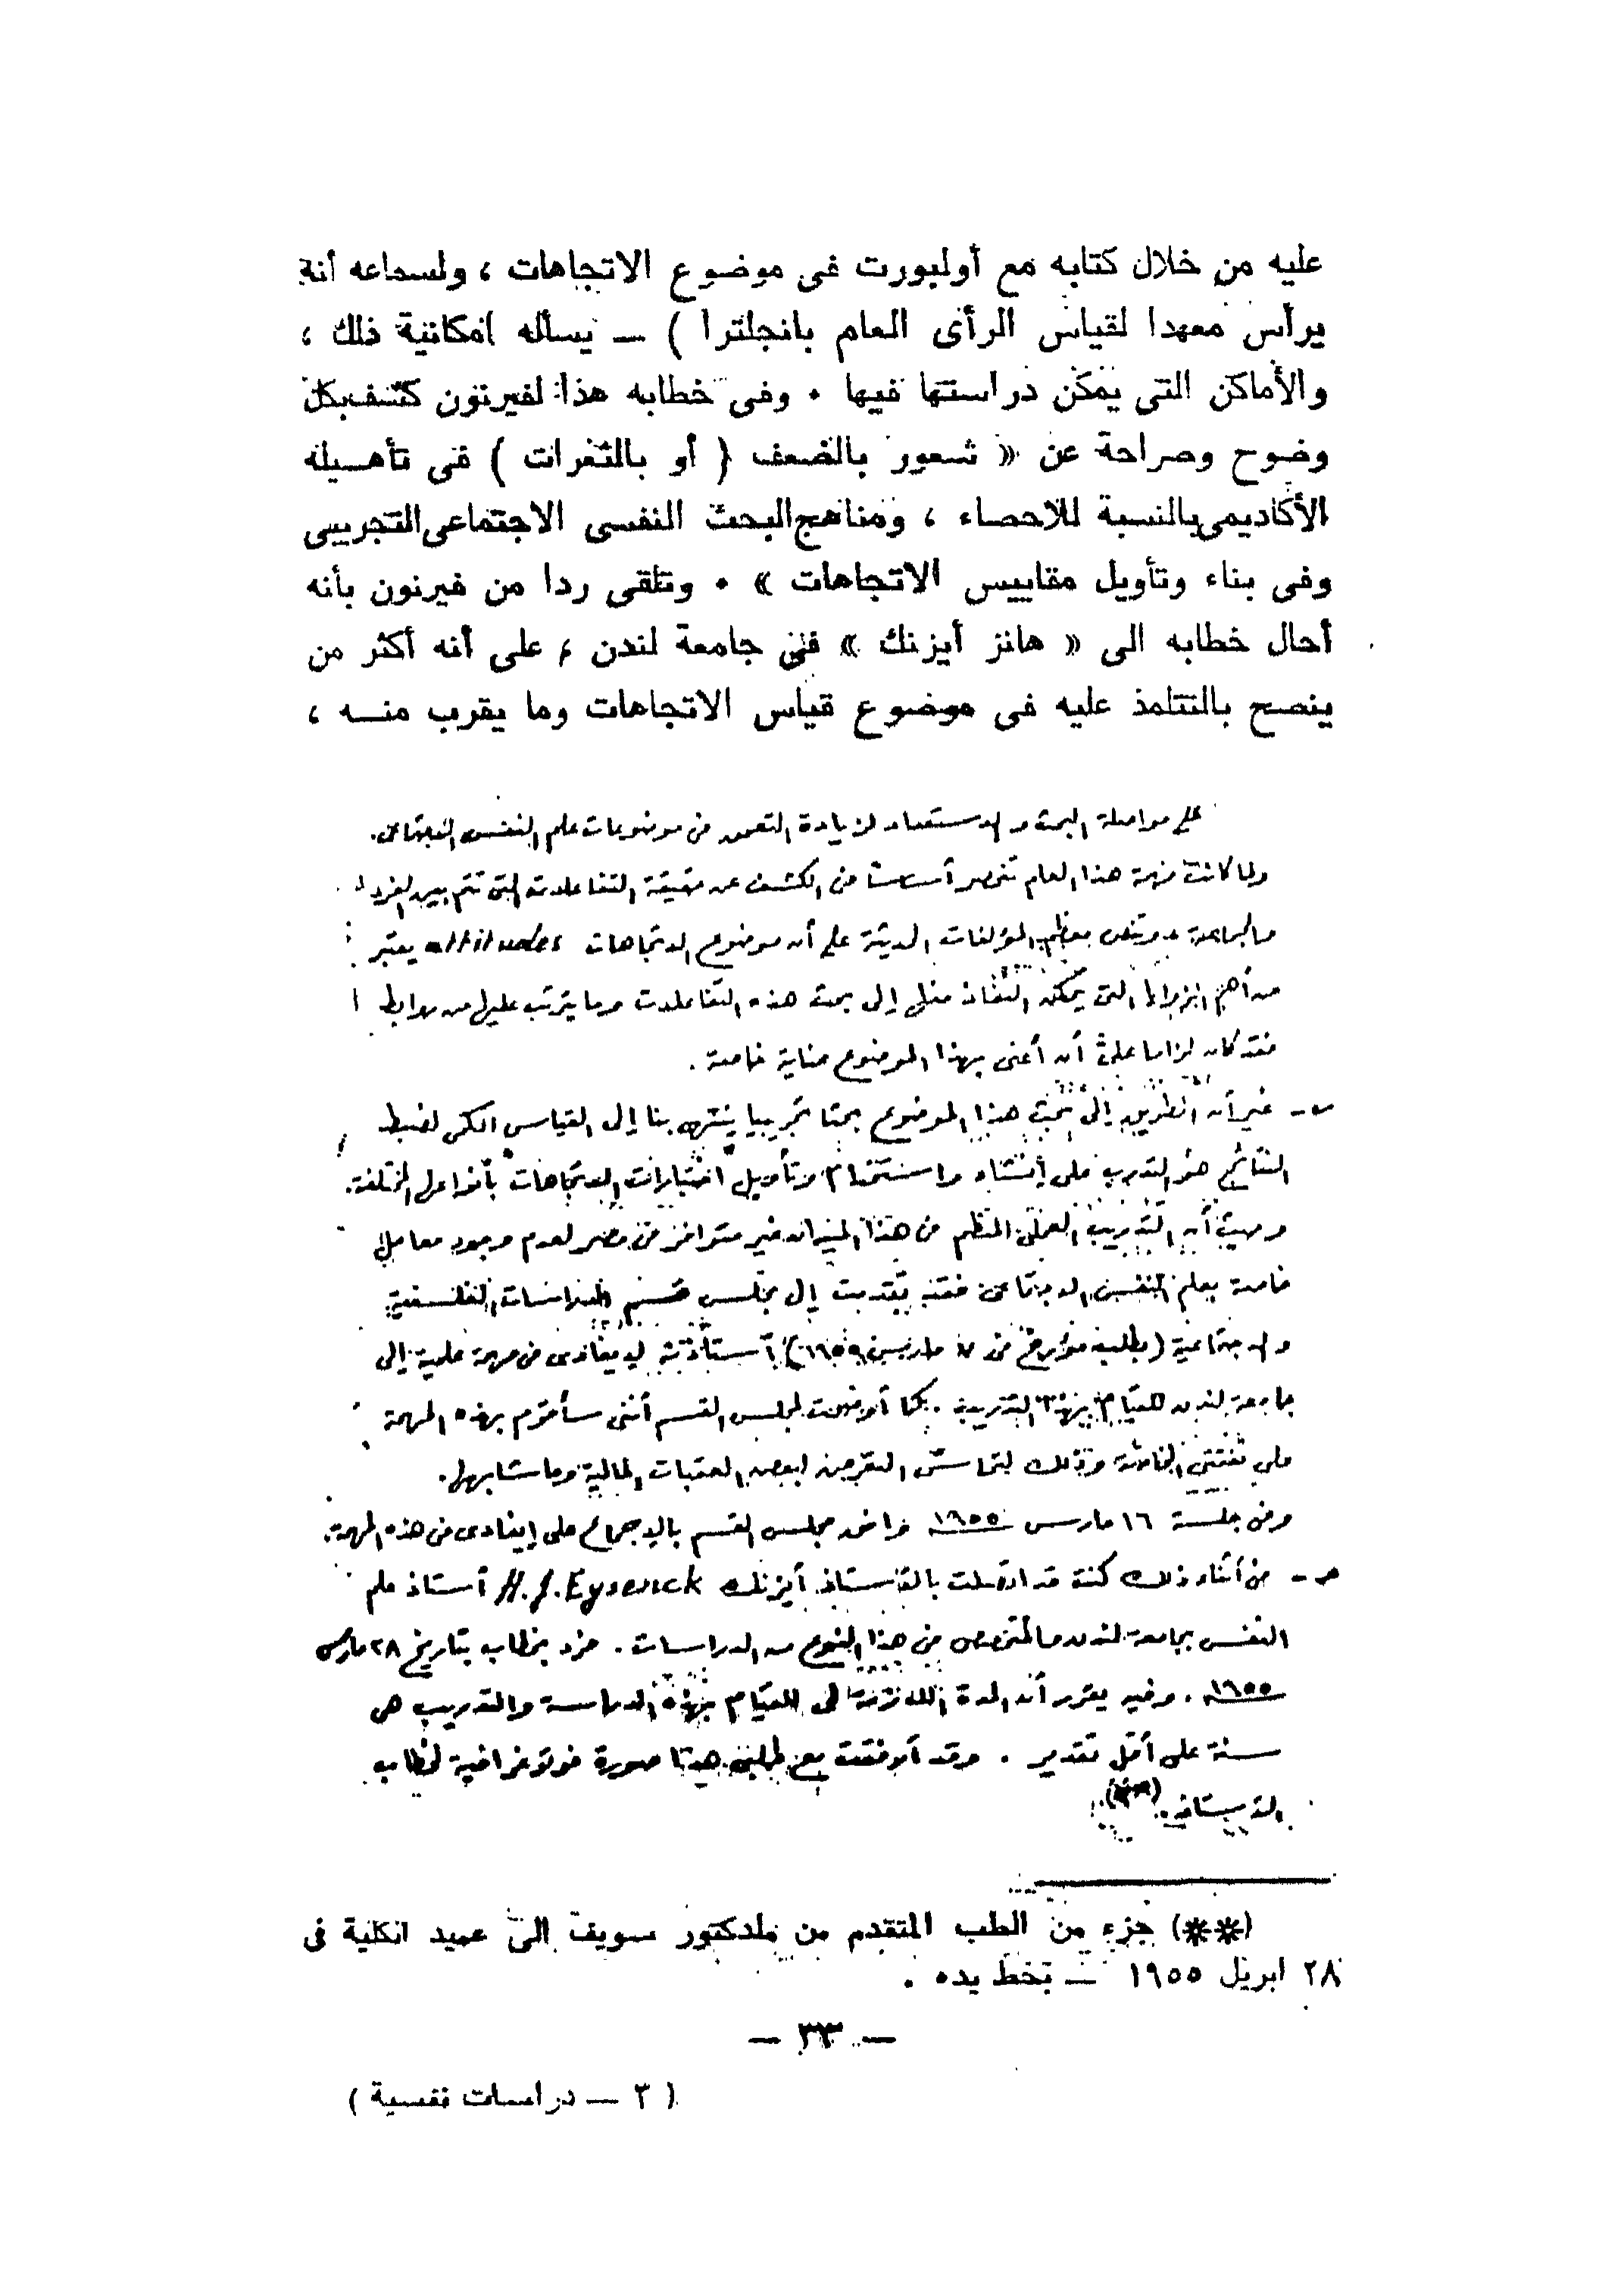 عليه من خلال كتابه مع أولبورت فى موضوع الاتجاهات ، ولسماعه أنه
يرأس معهدا لقياس الرأى العام بانجلترا ) — يسأله امكانية ذلك ،
والأماكن التى يمكن دراستها فيها ٠ وفى خطابه هذا لفيرنون كشف بكل
وضوح وصراحة عن « شعور بالضعف ( أو بالثغرات ) فى تأهيله
الأكاديمى بالنسبة للاحصاء ، ومناهج البحث النفسى الاجتماعى التجريبى
وفى بناء وتأويل مقاييس الاتجاهات » ٠ وتلقى ردا من فيرنون بأنه
أحال خطابه الى « هانز أيزنك » فى جامعة لندن ، على أنه أكثر من
ينصح بالتتلمذ عليه فى موضوع قياس الاتجاهات وما يقرب منه ،
على مواصلة البحث والاستعداد لزيادة التعمق فى موضوعات علم النفس الاجتماعى.
ولما كانت مهمة هذا العلم تنحصر أساسا فى الكشف عن حقيقة التفاعلات التى تتم بين الفرد
والجماعة وتنص معظم المؤلفات الحديثة على أن موضوع الاتجاهات attitudes يعتبر
من أهم الزوايا التى يمكن النفاذ منها إلى بحث هذه التفاعلات وما يترتب عليها من روابط
فقد كان لزاما علىّ أن أعنى بهذا الموضوع عناية خاصة .
ب - غير أن الطريق إلى بحث هذا الموضوع بحثا تجريبيا ينتهى بنا إلى القياس الكمى لضبط
النتائج هو التدريب على إنشاء واستخدام وتأويل اختبارات الاتجاهات بأنواعها المختلفة.
وحيث أن التدريب العملى المنظم فى هذا الميدان غير متوافر فى مصر لعدم وجود معامل
خاصة بعلم النفس الاجتماعى فقد تقدمت إلى مجلس قسم الدراسات الفلسفية
والاجتماعية (بطلب مؤرخ فى مارس ١٩٥٥) أستأذنه لإيفادى فى مهمة علمية إلى
جامعة لندن للقيام بهذا التدريب . كما أوضحت لمجلس القسم أننى سأقوم بهذه المهمة
على نفقتى الخاصة وذلك لتحاشى التعرض لبعض العقبات المالية وما شابهها.
وفى جلسة ١٦ مارس ١٩٥٥ وافق مجلس القسم بالإجماع على إيفادى فى هذه المهمة.
حـ - فى أثناء ذلك كنت قد اتصلت بالأستاذ أيزنك H.J.Eysenck أستاذ علم
النفس بجامعة لندن والمتخصص فى هذا النوع من الدراسات . فرد بخطاب بتاريخ ٢٨ مارس
١٩٥٥ . وفيه يقرر أن المدة اللازمة لى للقيام بهذه الدراسة والتدريب هى
سنة على أقل تقدير . وقد أرفقت مع طلبى هذا صورة فوتوغرافية لخطاب
الأستاذ . (**)
(**) جزء من الطب المتقدم من ملدكتور سويف الى عميد الكلية فى
٢٨ ابريل ١٩٥٥ — بخط يده .
— ٣٣ —
( ٣ — دراسات نفسية )